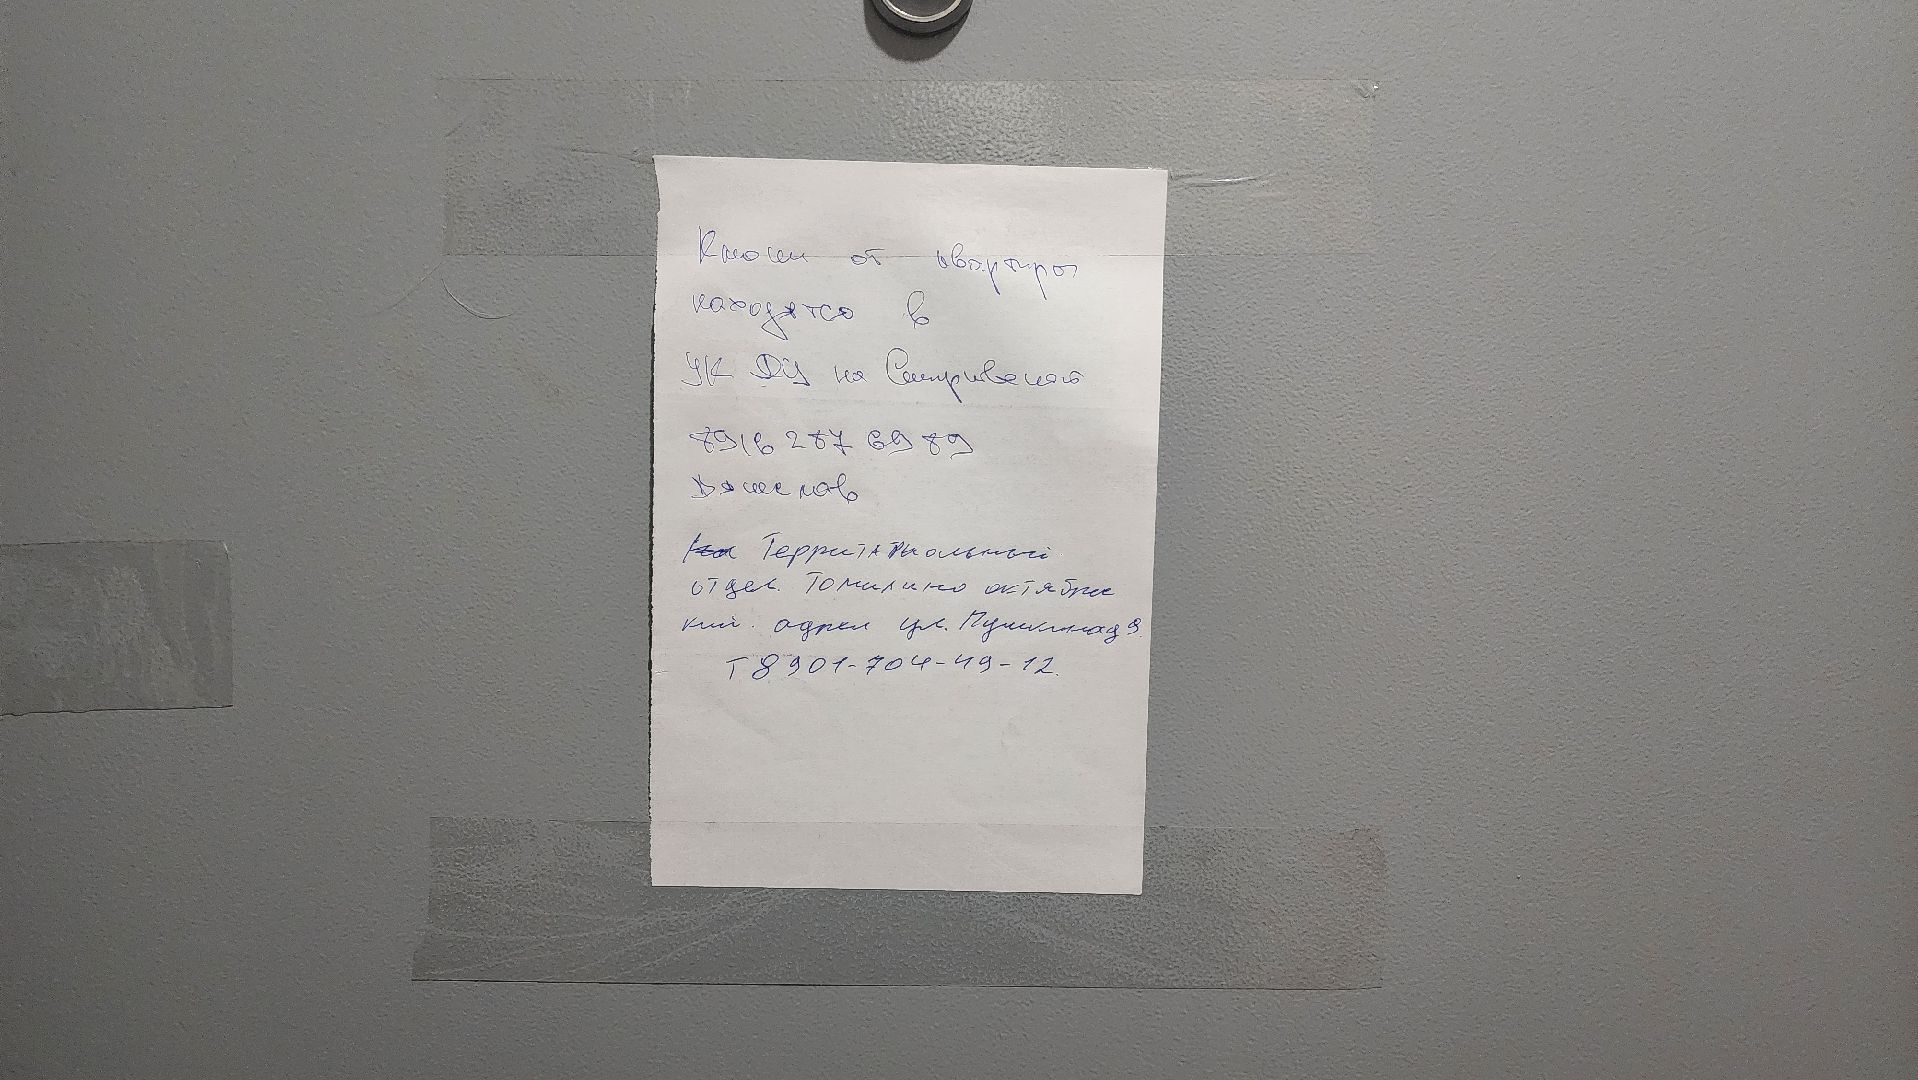 Ключи от квартиры
находятся в
УК ДУ на
8916 287 69 89
Вячеслав
Территариольный
отдел. Томилино октябрьс
кий. адрес ул. Пушкина д 9.
Т 8 901-704-49-12.